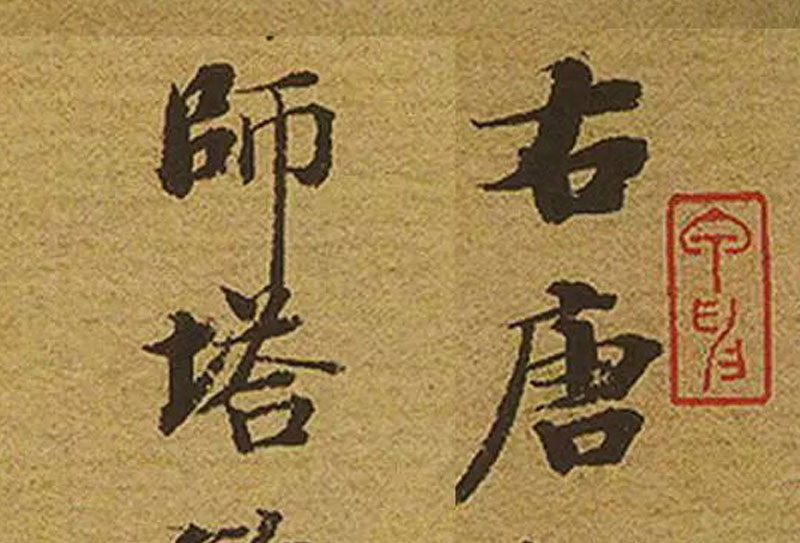 右唐
師塔